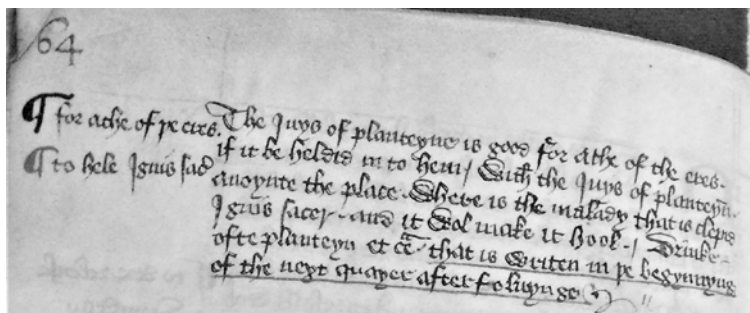 64
¶ for ache of þe eres. The Juys of planteyne is good for ache of the eres.
if it be heldid in to hem / With the Juys of planteyn.
¶ to hele Ignis sac anoynte the place. Where is the malady that is clepid
Ignis sacer. and it Wol make it hool. / Drinke
ofte planteyn et cet. that is Writen in þe begynnyng
of the next quayer after foluynge